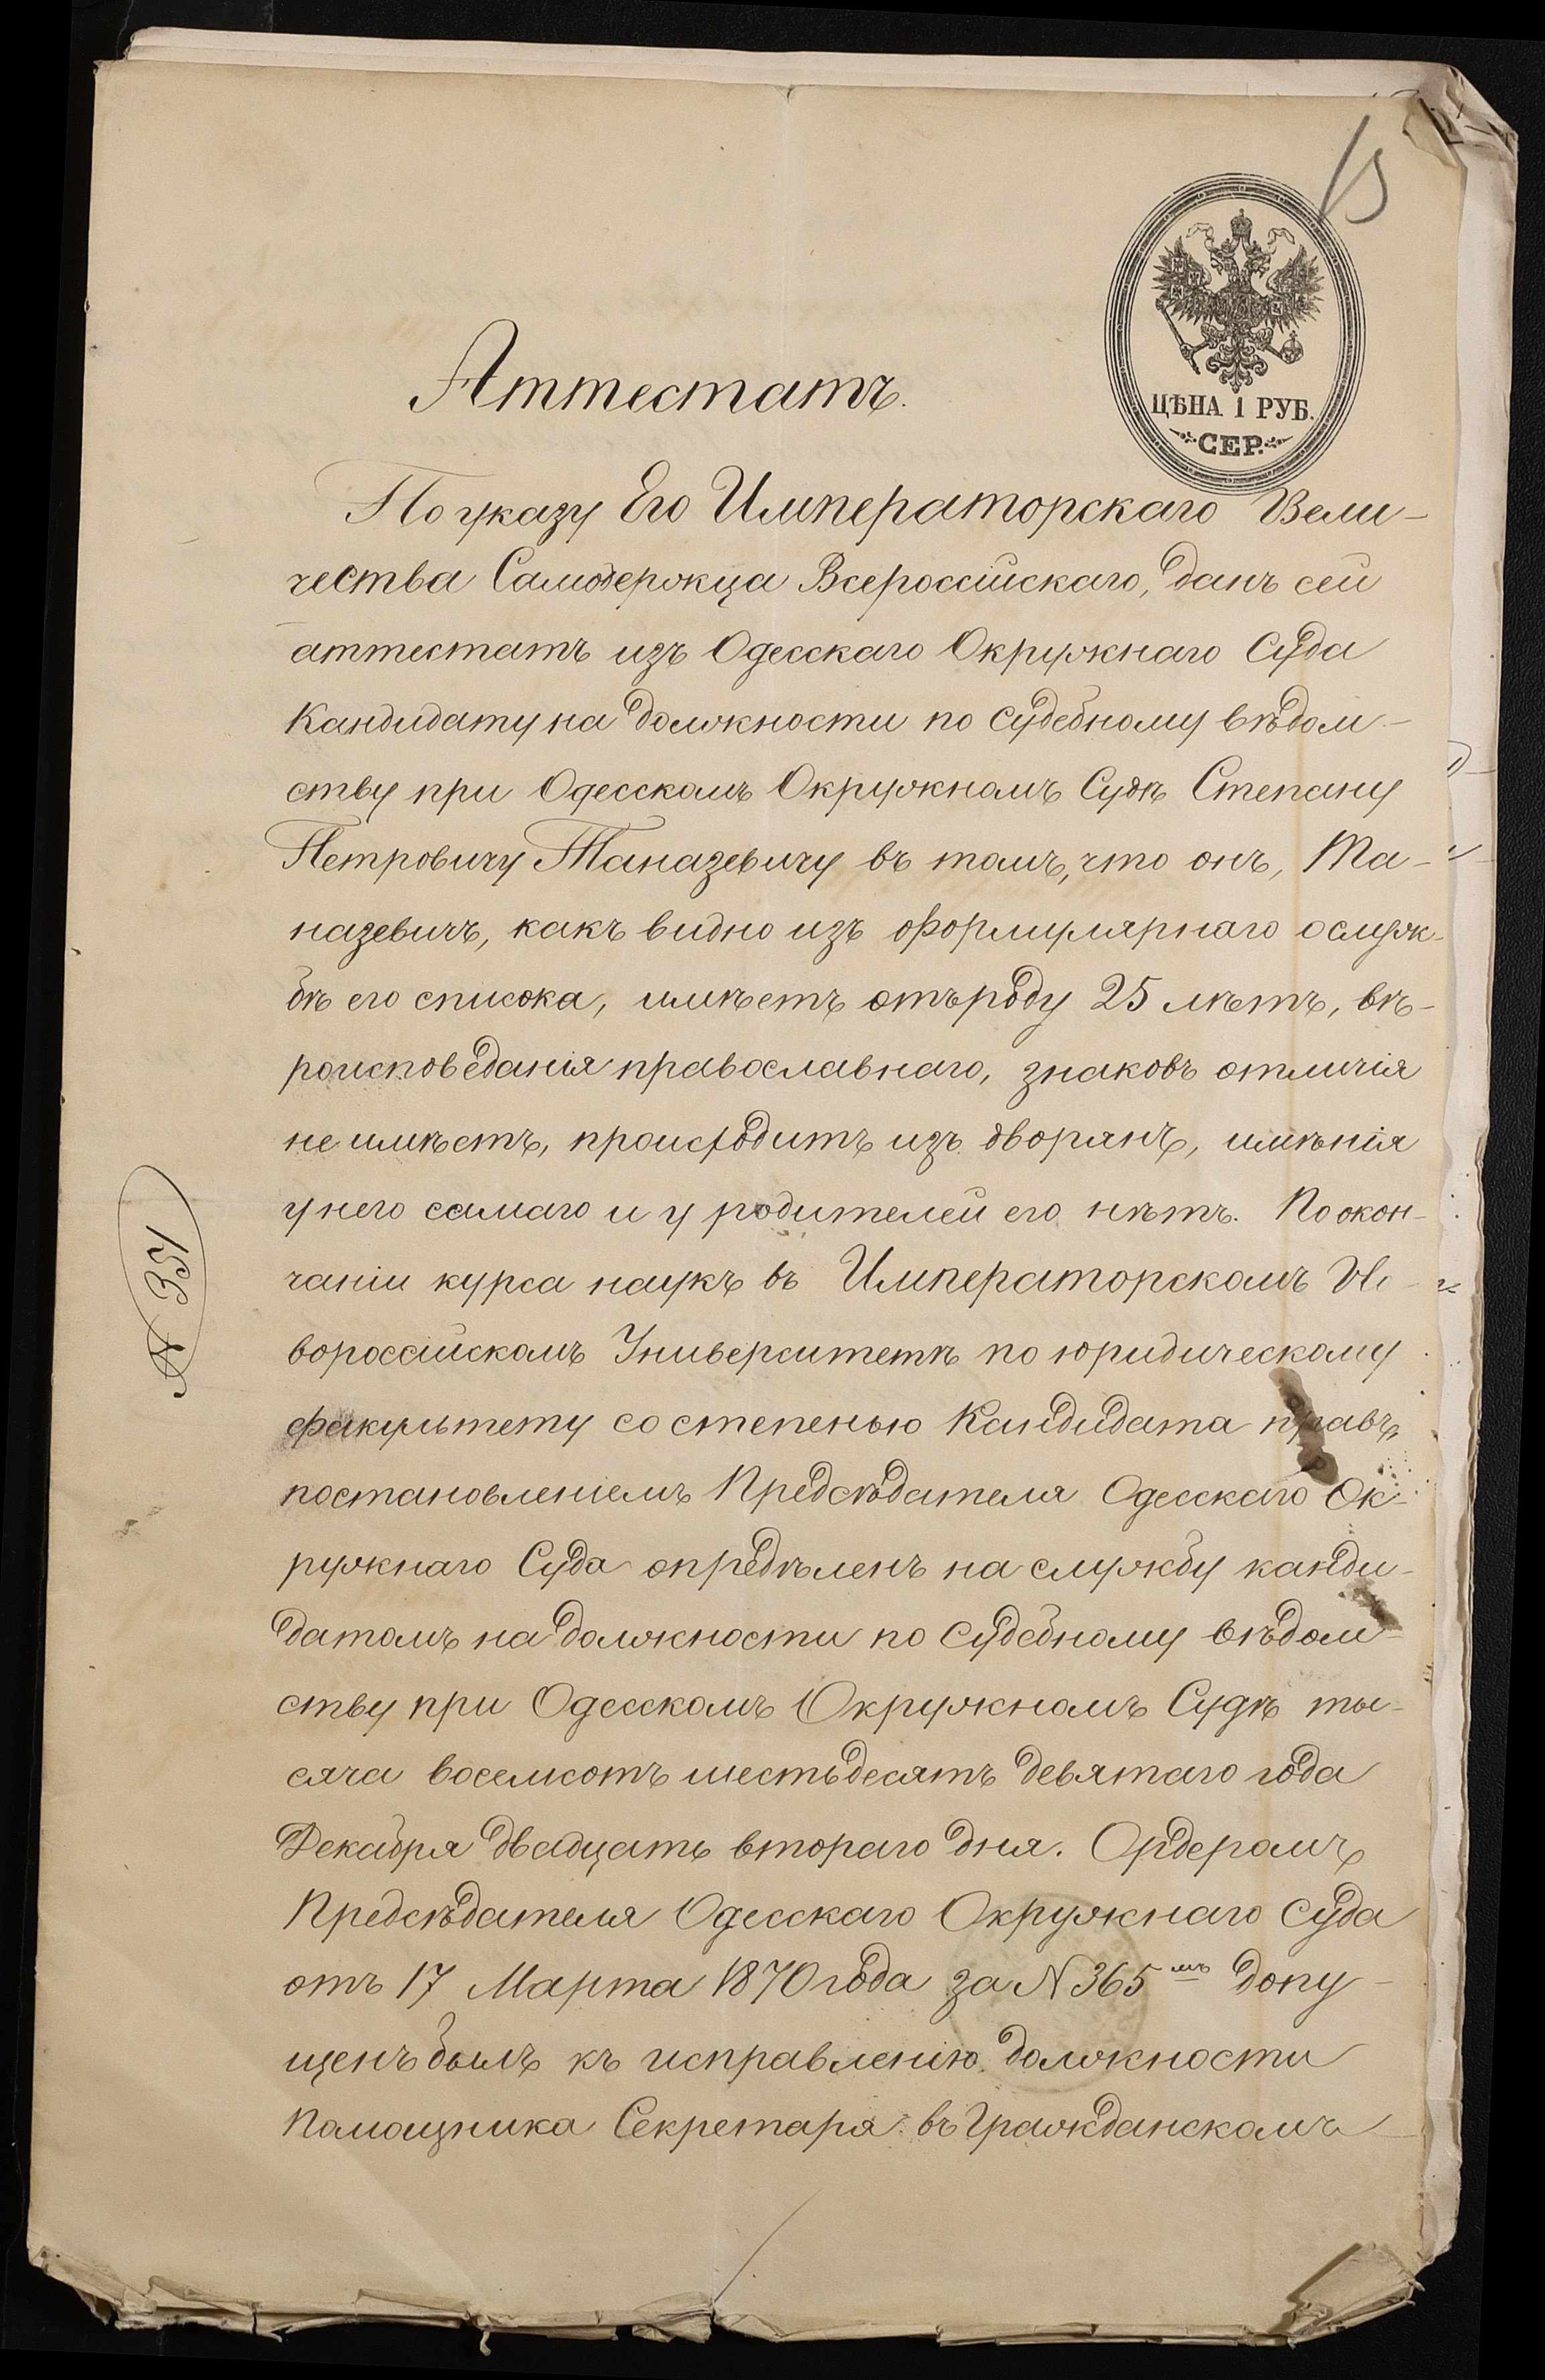 15
ЦѢНА 1 РУБ.
СЕР.
Аттестатъ.
По указу Его Императорскаго Вели-
чества Самодержца Всероссійскаго, данъ сей
аттестатъ изъ Одесскаго Окружнаго Суда
Кандидату на должности по судебному вѣдом-
ству при Одесскомъ Окружномъ Судѣ Степану
Петровичу Таназевичу въ томъ, что онъ, Та-
назевичъ, какъ видно изъ формулярнаго о служ-
бѣ его списока, имѣетъ отъ роду 25 лѣтъ, вѣ-
роисповеданія православнаго, знаковъ отличія
не имѣетъ, происходитъ изъ дворянъ, имѣнія
у него самаго и у родителей его нѣтъ. По окон-
чаніи курса наукъ въ Императорскомъ Но-
вороссійскомъ Университетѣ по юридическому
факультету со степенью Кандидата правъ,
постановленіемъ Предсѣдателя Одесскаго Ок-
ружнаго Суда опредѣленъ на службу канди-
датомъ на должности по судебному вѣдом-
ству при Одесскомъ Окружномъ Судѣ ты-
сяча восемсотъ шестьдесятъ девятаго года
Декабря двадцать втораго дня. Ордеромъ
Предсѣдателя Одесскаго Окружнаго Суда
отъ 17 Марта 1870 года за N 365мъ допу-
щенъ былъ къ исправленію должности
Помощника Секретаря въ Гражданскомъ
N 351